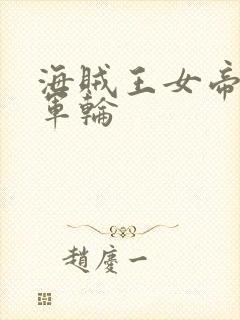 海賊王女帝
軍輪
趙慶一